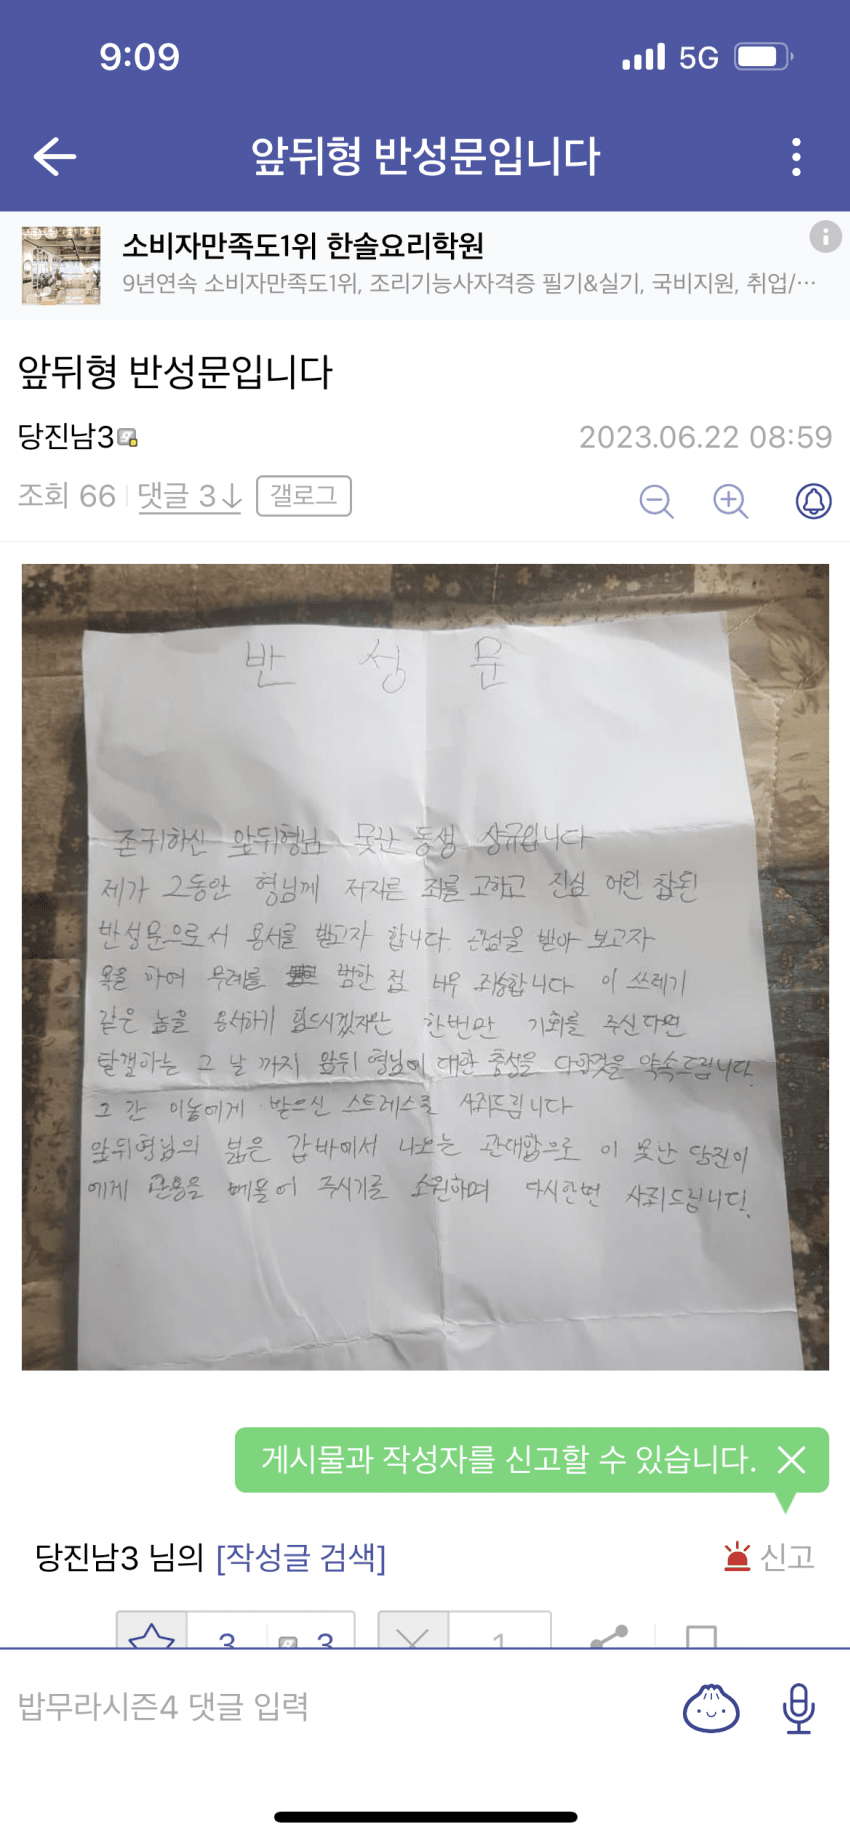 9:09
5G
앞뒤형 반성문입니다
소비자만족도1위 한솔요리학원
9년연속 소비자만족도1위, 조리기능사자격증 필기&실기, 국비지원, 취업/…
앞뒤형 반성문입니다
당진남3
2023.06.22 08:59
조회 66 댓글 3↓ 갤로그
반 성 문
존귀하신 앞뒤형님 못난 동생 상규입니다
제가 그동안 형님께 저지른 죄를 고하고 진심 어린 참된
반성문으로서 용서를 받고자 합니다. 관심을 받아 보고자
욕을 하여 무례를 범한 점 너무 죄송합니다 이 쓰레기
같은 놈을 용서하기 힘드시겠지만 한번만 기회를 주신다면
탈갤하는 그 날 까지 앞뒤 형님에 대한 충성을 다할것을 약속드립니다.
그 간 이놈에게 받으신 스트레스를 사죄드립니다
앞뒤형님의 넓은 갑바에서 나오는 관대함으로 이 못난 당진이
에게 관용을 베풀어 주시기를 소원하며 다시한번 사죄드립니다.
게시물과 작성자를 신고할 수 있습니다.
당진남3 님의 [작성글 검색]
신고
3 3 1
밥무라시즌4 댓글 입력